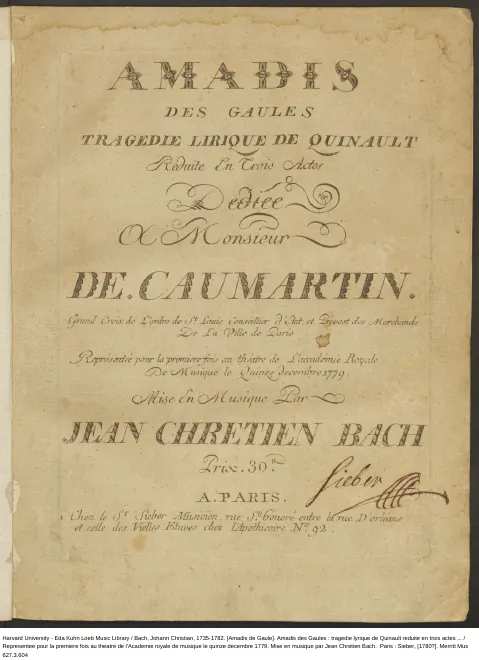 AMADIS
DES GAULES
TRAGEDIE LIRIQUE DE QUINAULT
Réduite En Trois Actes
Dediée
A Monsieur
DE.CAUMARTIN.
Grand Croix de L'ordre de St. Louis Conseiller d'Etat, et Prevost des Marchands
De La Ville de Paris
Représentée pour la premiere fois au théatre de L'accadémie Royale
De Musique le Quinze decembre 1779.
Mise En Musique Par
JEAN CHRETIEN BACH
Prix. 30.tt
A.PARIS.
Sieber
Chez le Sr. Sieber Musicien, rue St. honoré entre la rue D'orleans
et celle des Vielles Etuves chez l'Apothicaire No. 92.
Harvard University - Eda Kuhn Loeb Music Library / Bach, Johann Christian, 1735-1782. [Amadis de Gaule]. Amadis des Gaules : tragedie lyrique de Quinault reduite en trois actes ... /
Representee pour la premiere fois au theatre de l'Academie royale de musique le quinze decembre 1779. Mise en musique par Jean Chretien Bach. Paris : Sieber, [1780?]. Merritt Mus
627.3.604